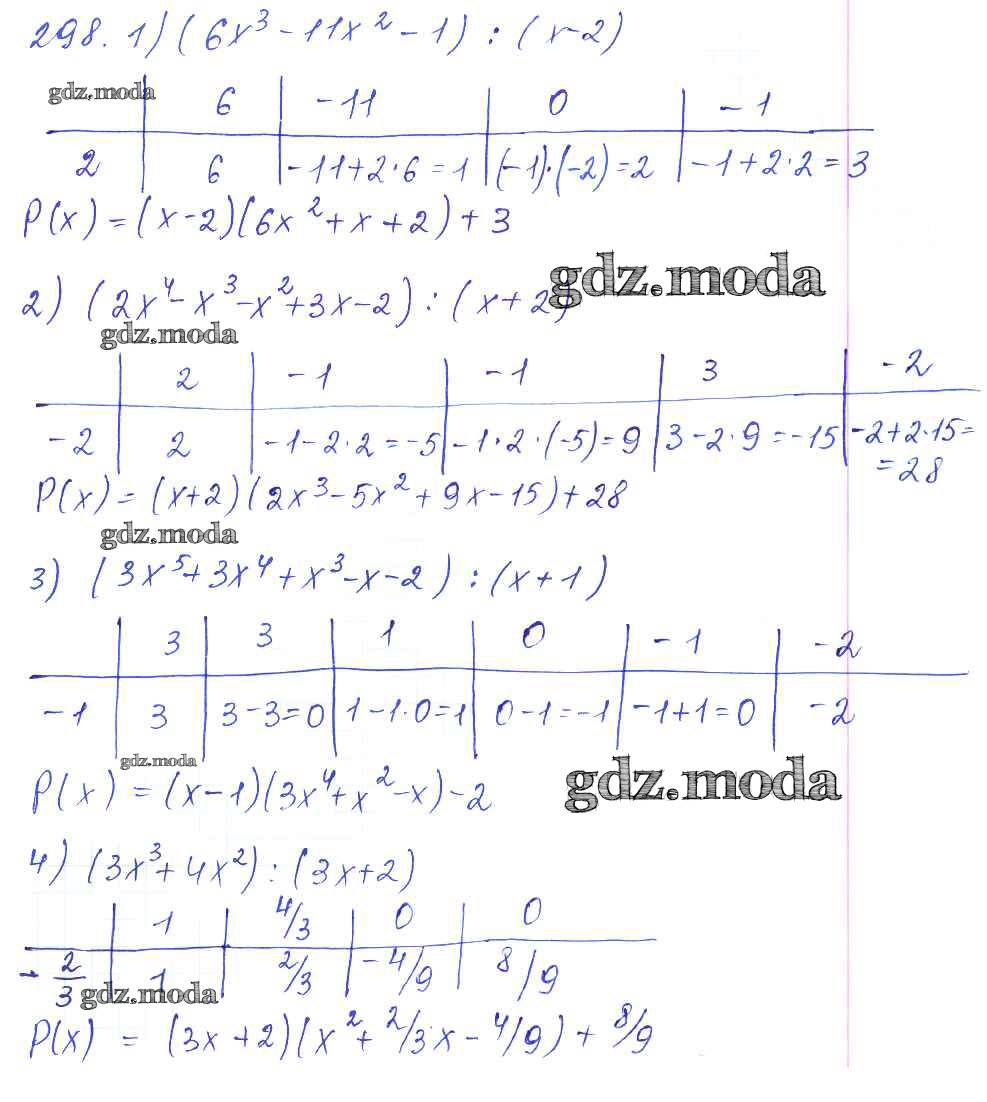 298. 1) (6x³ - 11x² - 1) : (x-2)
gdz.moda 6 -11 0 -1
2 6 -11+2·6=1 (-1)·(-2)=2 -1+2·2=3
P(x) = (x-2)(6x² + x + 2) + 3
gdz.moda
2) (2x⁴ - x³ - x² + 3x - 2) : (x+2)
gdz.moda
2 -1 -1 3 -2
-2 2 -1-2·2=-5 -1·2·(-5)=9 3-2·9=-15 -2+2·15=
=28
P(x) = (x+2)(2x³ - 5x² + 9x - 15) + 28
gdz.moda
3) (3x⁵ + 3x⁴ + x³ - x - 2) : (x+1)
3 3 1 0 -1 -2
-1 3 3-3=0 1-1·0=1 0-1=-1 -1+1=0 -2
gdz.moda
P(x) = (x-1)(3x⁴ + x² - x) - 2
gdz.moda
4) (3x³ + 4x²) : (3x+2)
1 4/3 0 0
-2/3 1 2/3 -4/9 8/9
gdz.moda
P(x) = (3x+2)(x² + 2/3x - 4/9) + 8/9